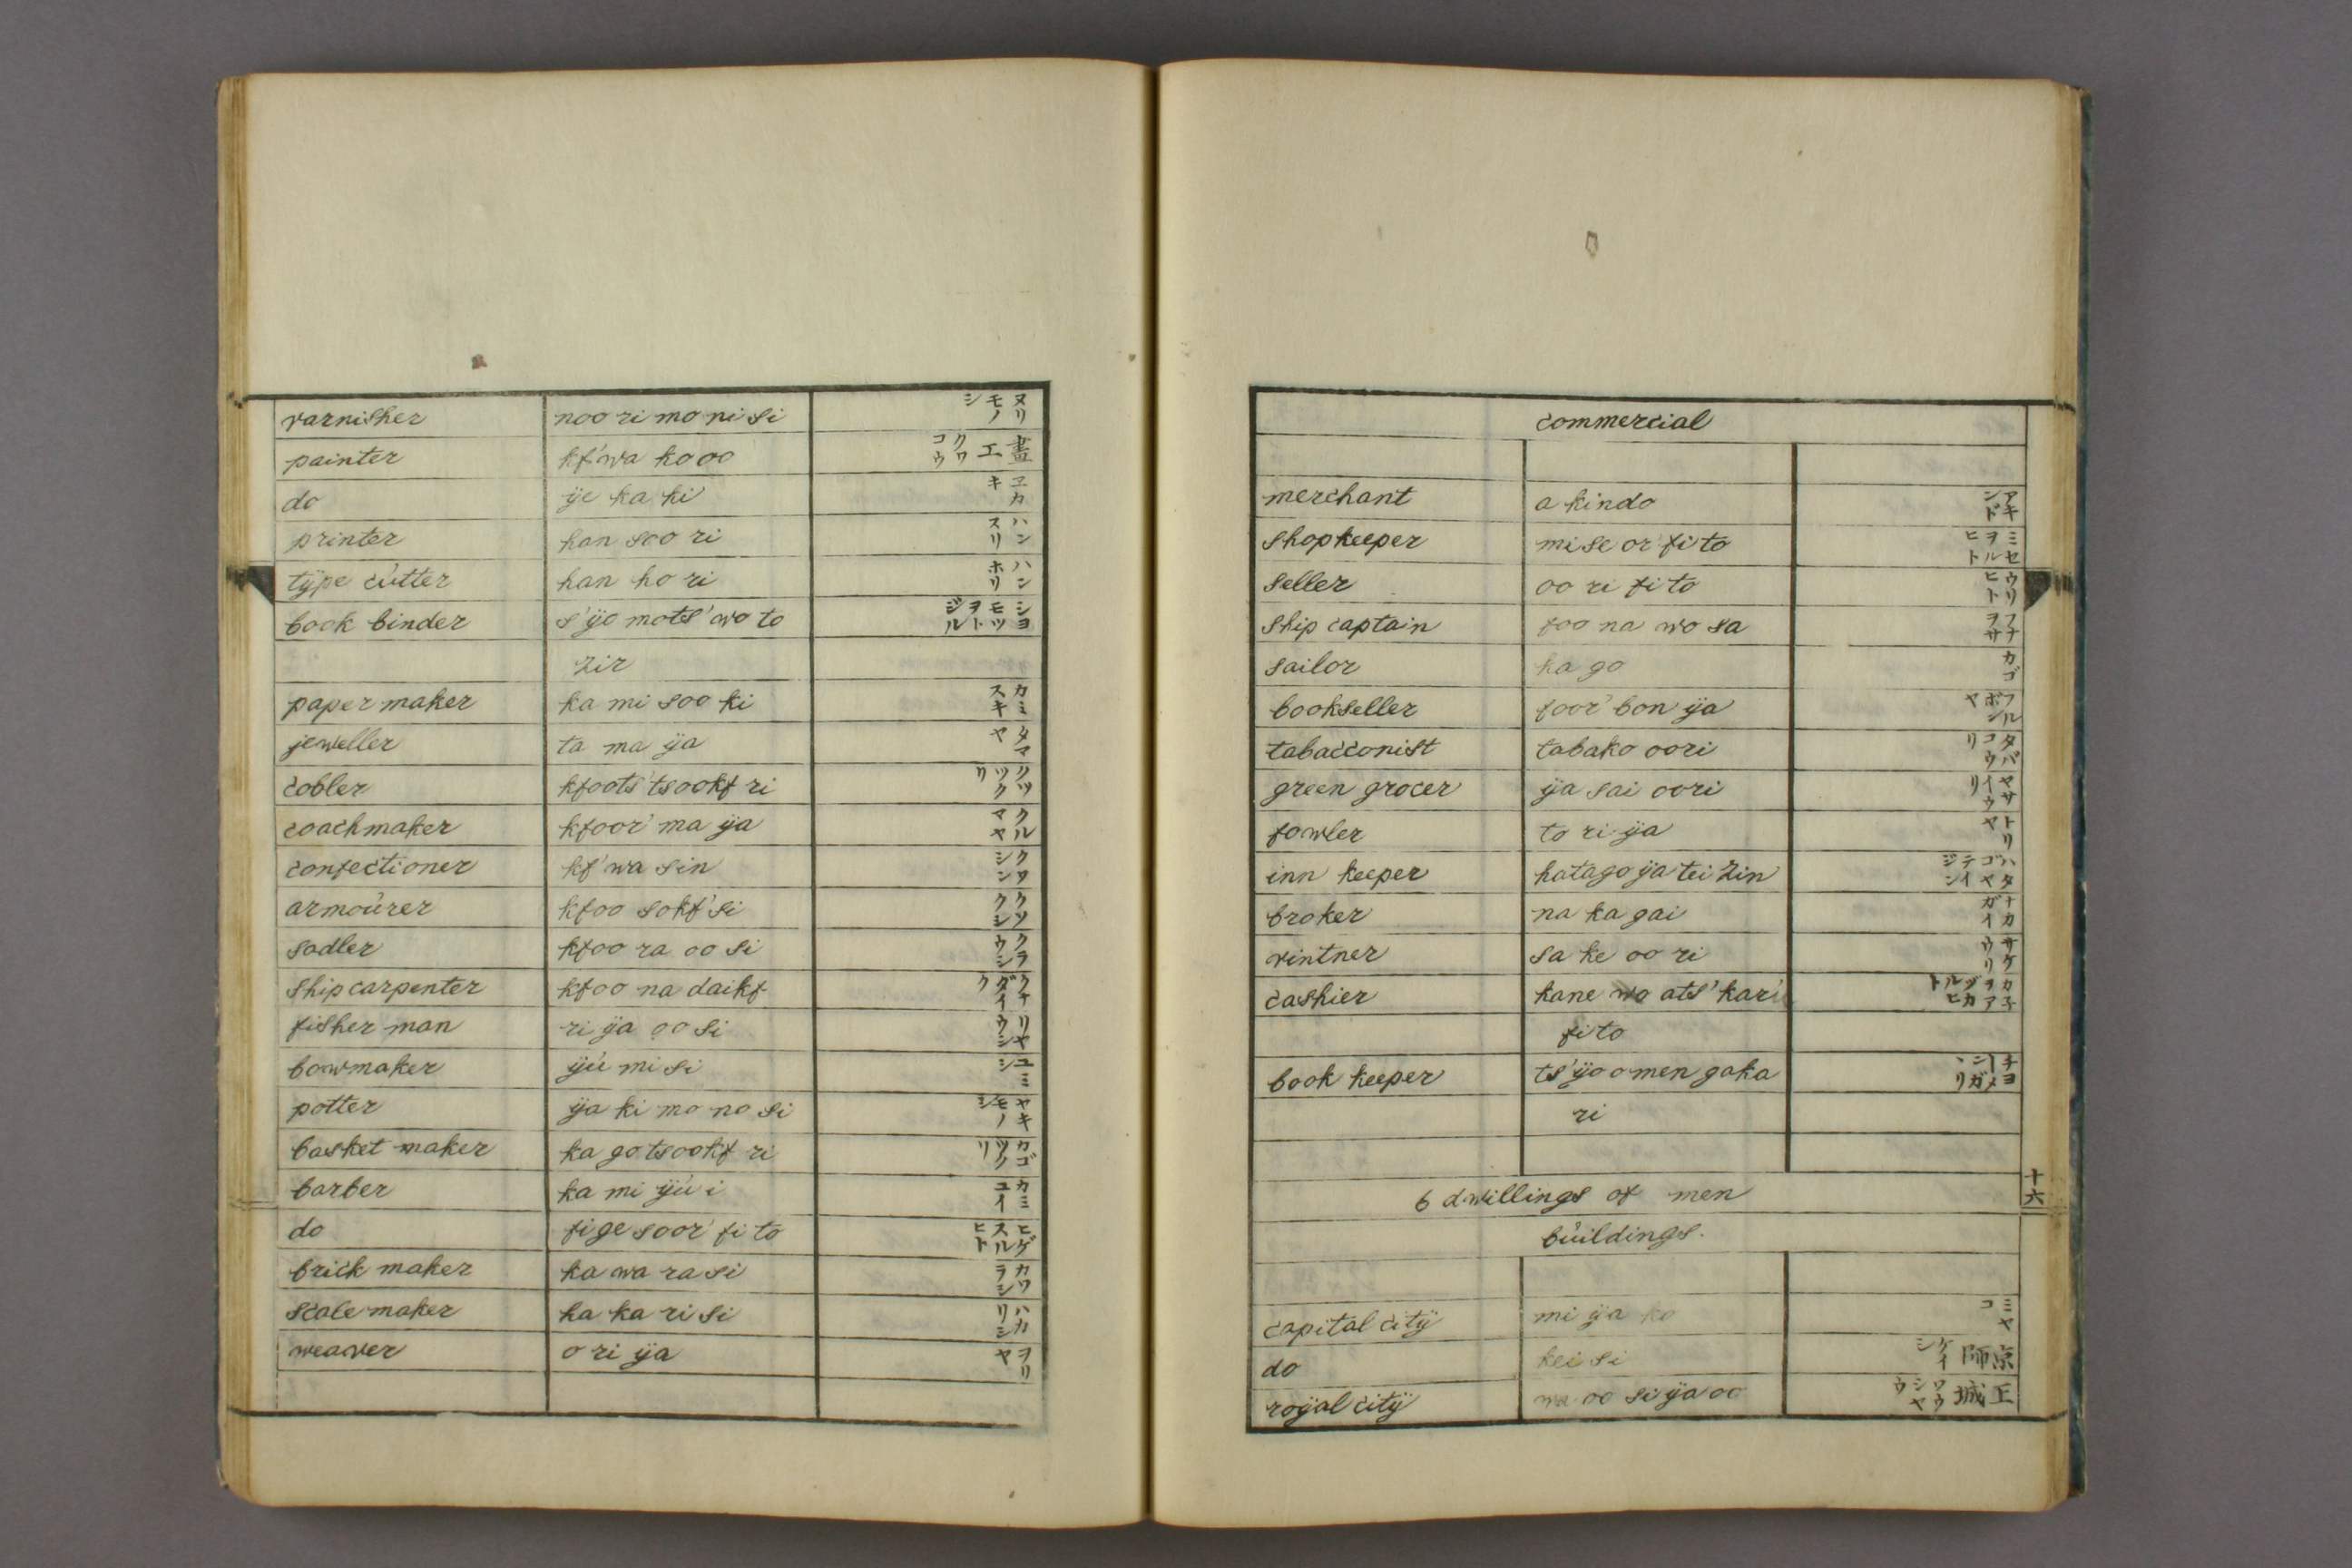 varnisher noo ri mo ni si ヌリモノシ
painter kf'wa ko oo 畫工 クワコウ
do ÿe ka ki エカキ
printer han soo ri ハンスリ
tÿpe cutter han ho ri ハンホリ
book binder s'ÿo mots' wo to シヨモツヲトジル
zir
paper maker ka mi soo ki カミスキ
jeweller ta ma ÿa タマヤ
cobler kfoots' tsookf ri クツツクリ
coachmaker kfoor' ma ÿa クルマヤ
confectioner kf'wa sin クワシン
armourer kfoo sokf' si クソクシ
sadler kfoo ra oo si クラウシ
ship carpenter kfoo na daikf クナダイク
fisher man ri ÿa oo si リヤウシ
bowmaker ÿu mi si ユミシ
potter ÿa ki mo no si ヤキモノシ
basket maker ka go tsookf ri カゴツクリ
barber ka mi ÿu i カミユイ
do fi ge soor' fi to ヒゲスルヒト
brick maker ka wa ra si カワラシ
scale maker ha ka ri si ハカリシ
weaver o ri ÿa ヲリヤ
commercial
merchant a kindo アキンド
shopkeeper mi se or' fi to ミセヲルヒト
seller oo ri fi to ウリヒト
ship captain foo na wo sa フナヲサ
sailor ka go カゴ
bookseller foor' bon ÿa フルボンヤ
tabacconist tabako oori タバコウリ
green grocer ÿa sai oori ヤサイウリ
fowler to ri ÿa トリヤ
inn keeper hatago ÿa tei zin ハタゴヤテイジン
broker na ka gai ナカガイ
vintner sa ke oo ri サケウリ
cashier kane wo ats' kar' カネヲアヅカルヒト
fi to
book keeper ts'ÿoo men gaka
ri
十六
6 dwillings of men
buildings.
capital citÿ mi ÿa ko ミヤコ
do kei si 京師 ケイシ
roÿal citÿ wa oo si ÿa oo 王城 ワウシヤウ